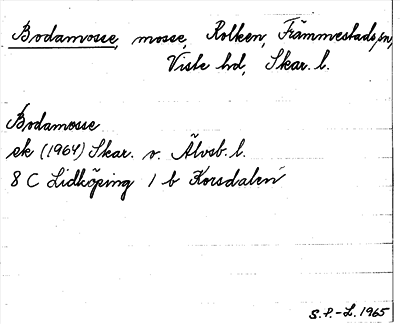 Bodamosse, mosse, Rolken, Främmestads sn,
Viste hd, Skar. l.
Bodamosse
ek (1964) Skar. o. Älvsb. l.
8 C Lidköping 1 b Korsdalen
S.P.-L. 1965